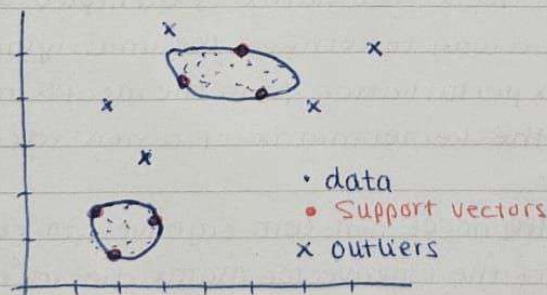 • data
• Support vectors
x outliers